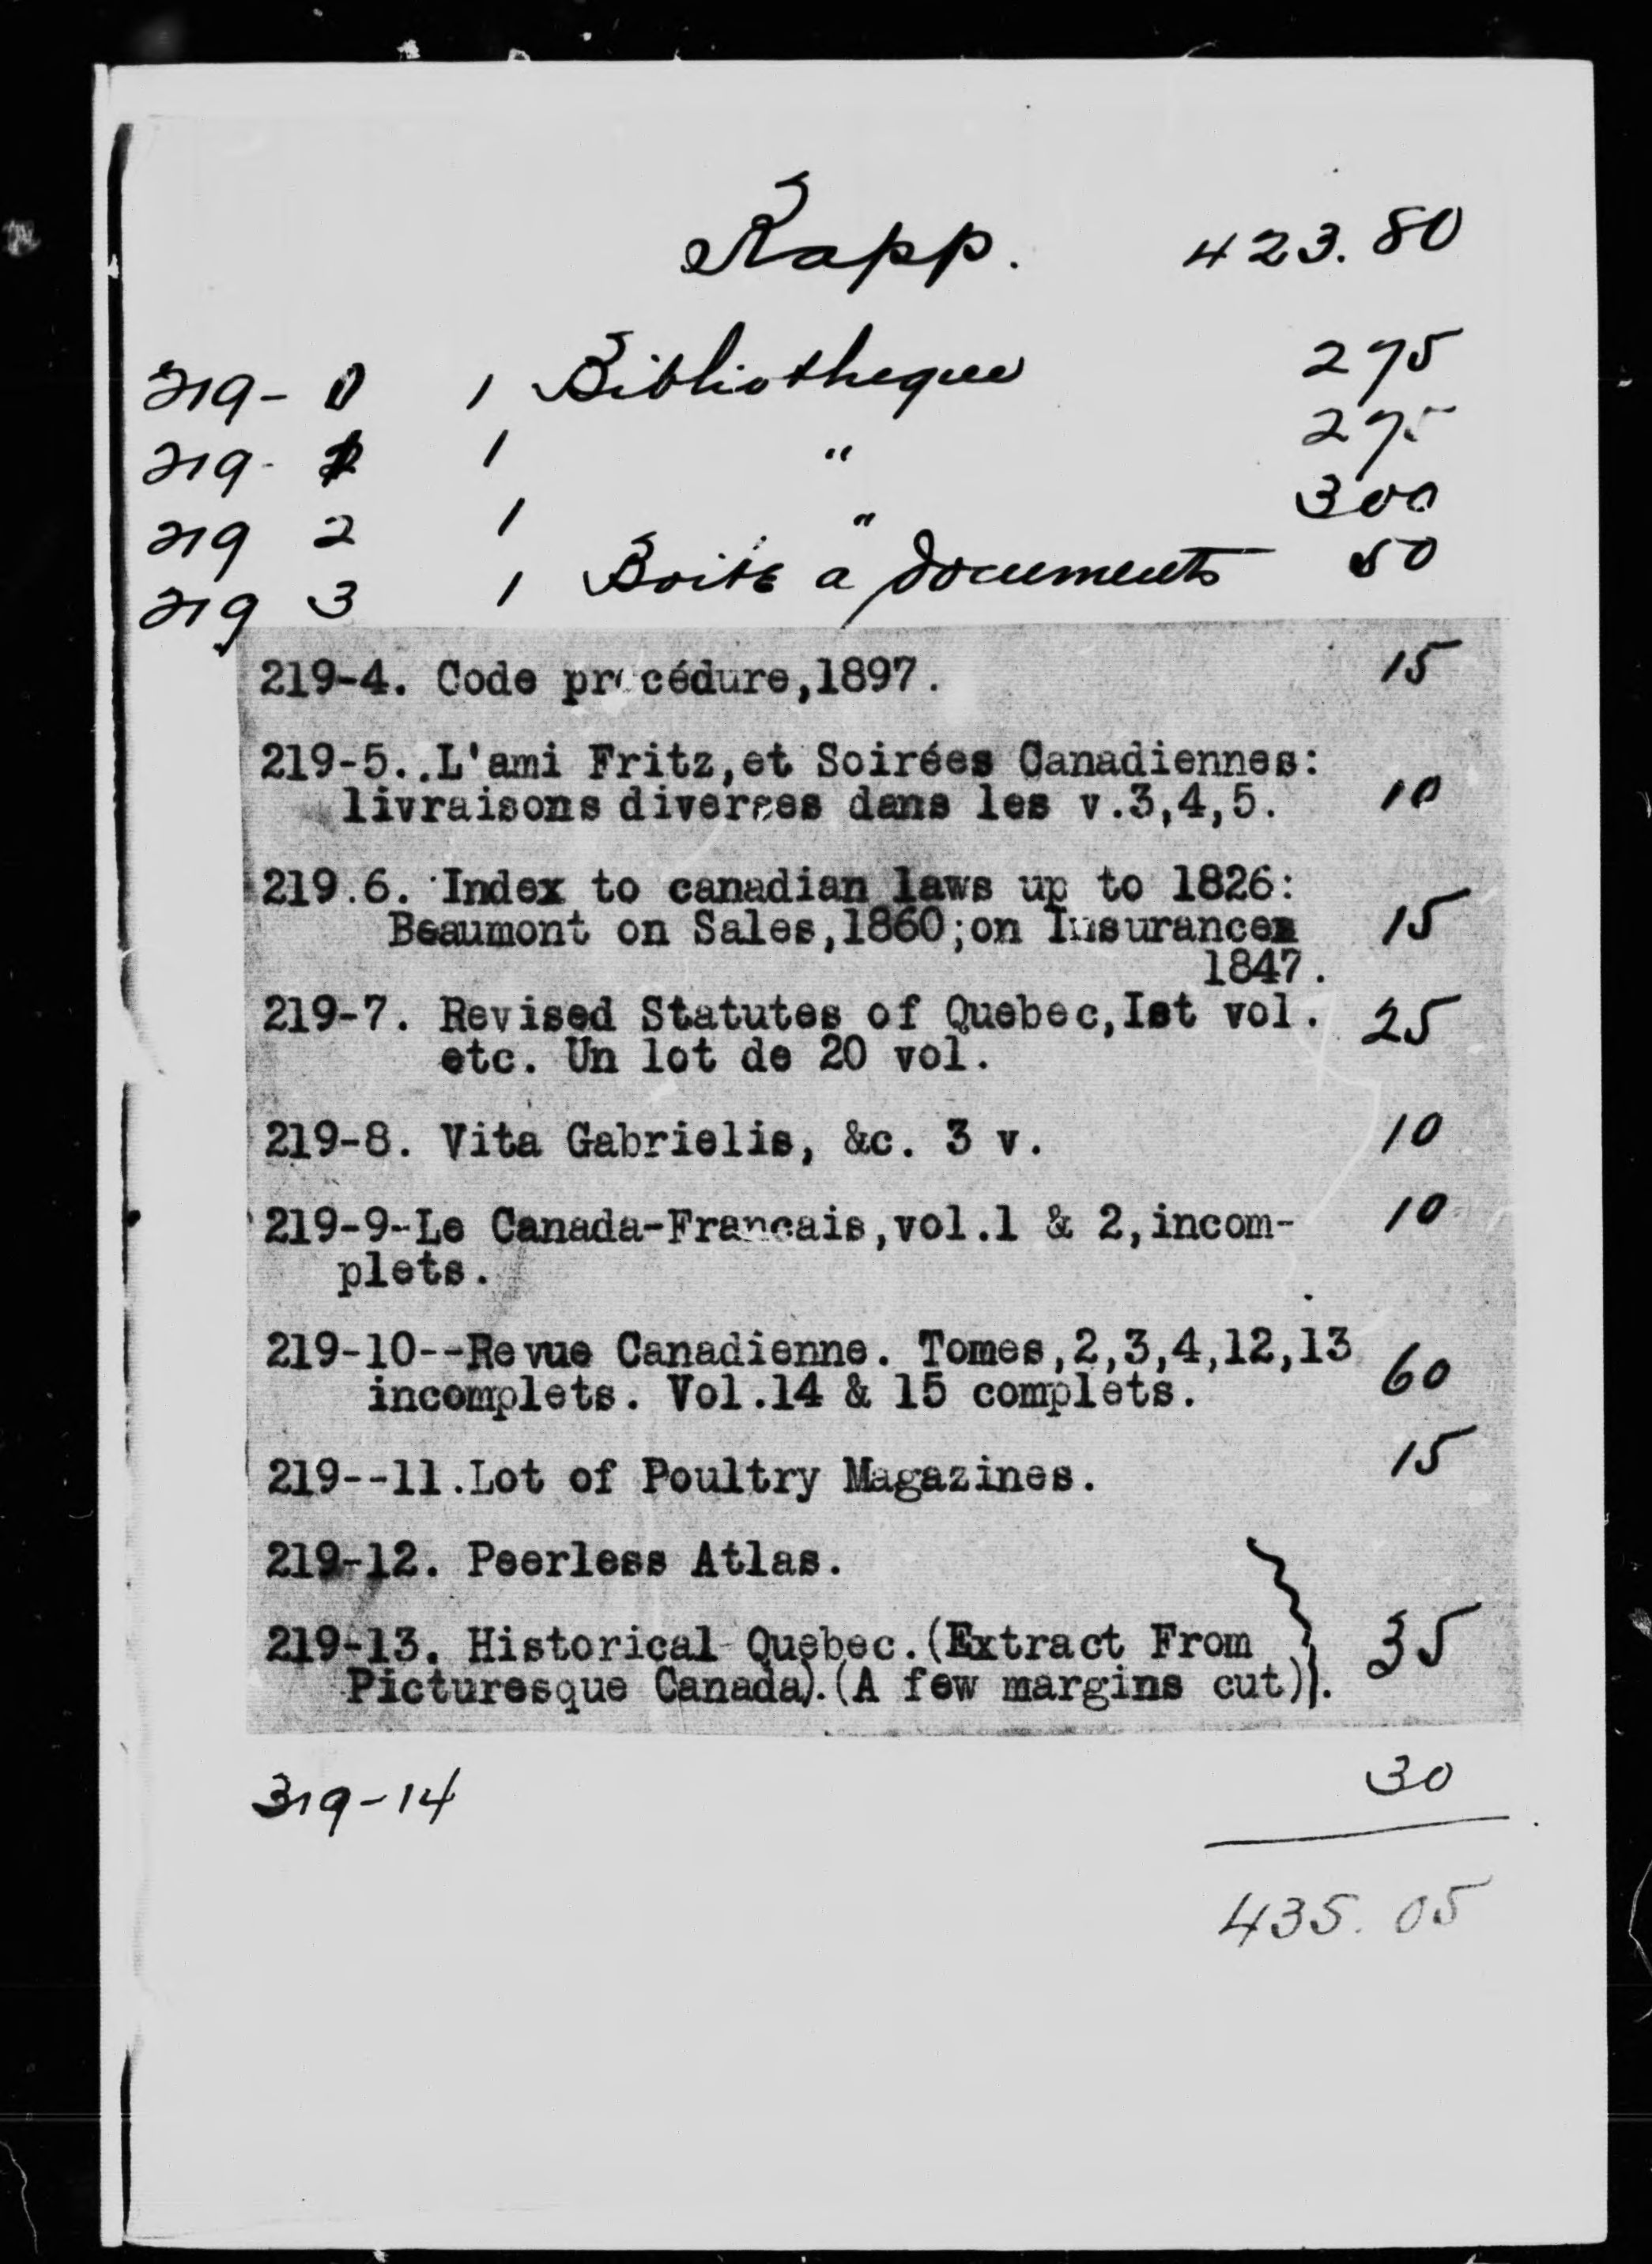 Rapp. 423.80
219- 0 1 Bibliotheque 275
219- 1 1 " 275
219 2 1 " 300
219 3 1 Boite a documents 50
219-4. Code procédure,1897. 15
219-5..L'ami Fritz,et Soirées Canadiennes:
livraisons diverses dans les v.3,4,5. 10
219.6. Index to canadian laws up to 1826:
Beaumont on Sales,1860;on Insurances 15
1847.
219-7. Revised Statutes of Quebec,Ist vol. 25
etc. Un lot de 20 vol.
219-8. Vita Gabrielis, &c. 3 v. 10
219-9-Le Canada-Francais,vol.1 & 2,incom- 10
plets.
219-10--Revue Canadienne. Tomes,2,3,4,12,13
incomplets. Vol.14 & 15 complets. 60
219--11.Lot of Poultry Magazines. 15
219-12. Peerless Atlas.
219-13. Historical Quebec.(Extract From } 35
Picturesque Canada).(A few margins cut).
319-14 30
435.05